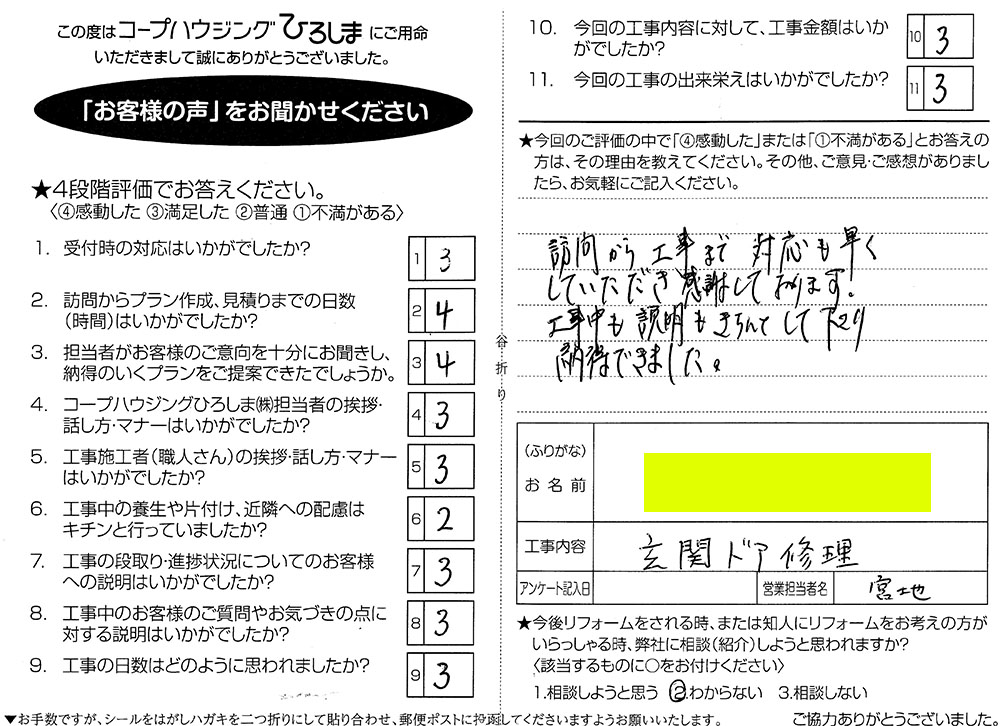 この度はコープハウジングひろしまにご用命
いただきまして誠にありがとうございました。
「お客様の声」をお聞かせください
★4段階評価でお答えください。
〈④感動した ③満足した ②普通 ①不満がある〉
1. 受付時の対応はいかがでしたか?
1 3
2. 訪問からプラン作成、見積りまでの日数
(時間)はいかがでしたか?
2 4
3. 担当者がお客様のご意向を十分にお聞きし、
納得のいくプランをご提案できたでしょうか。
3 4
4. コープハウジングひろしま㈱担当者の挨拶・
話し方・マナーはいかがでしたか?
4 3
5. 工事施工者(職人さん)の挨拶・話し方・マナー
はいかがでしたか?
5 3
6. 工事中の養生や片付け、近隣への配慮は
キチンと行っていましたか?
6 2
7. 工事の段取り・進捗状況についてのお客様
への説明はいかがでしたか?
7 3
8. 工事中のお客様のご質問やお気づきの点に
対する説明はいかがでしたか?
8 3
9. 工事の日数はどのように思われましたか?
9 3
▼お手数ですが、シールをはがしハガキを二つ折りにして貼り合わせ、郵便ポストに投函してくださいますようお願いいたします。
谷折り
10. 今回の工事内容に対して、工事金額はいか
がでしたか?
10 3
11. 今回の工事の出来栄えはいかがでしたか?
11 3
★今回のご評価の中で「④感動した」または「①不満がある」とお答えの
方は、その理由を教えてください。その他、ご意見・ご感想がありまし
たら、お気軽にご記入ください。
訪問から工事まで 対応も早く
していただき感謝しております!
工事中も説明もきちんとして下さり
納得できました。
(ふりがな)
お名前
工事内容 玄関ドア修理
アンケート記入日 営業担当者名 宮地
★今後リフォームをされる時、または知人にリフォームをお考えの方が
いらっしゃる時、弊社に相談(紹介)しようと思われますか?
〈該当するものに○をお付けください〉
1.相談しようと思う ②わからない 3.相談しない
ご協力ありがとうございました。